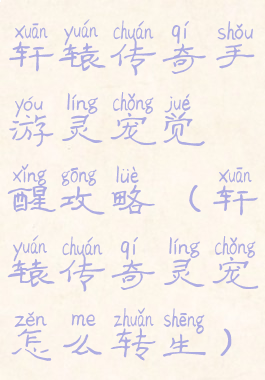 xuān yuán chuán qí shǒu
轩辕传奇手
yóu líng chǒng jué
游灵宠觉
xǐng gōng lüè xuān
醒攻略（轩
yuán chuán qí líng chǒng
辕传奇灵宠
zěn me zhuǎn shēng
怎么转生）